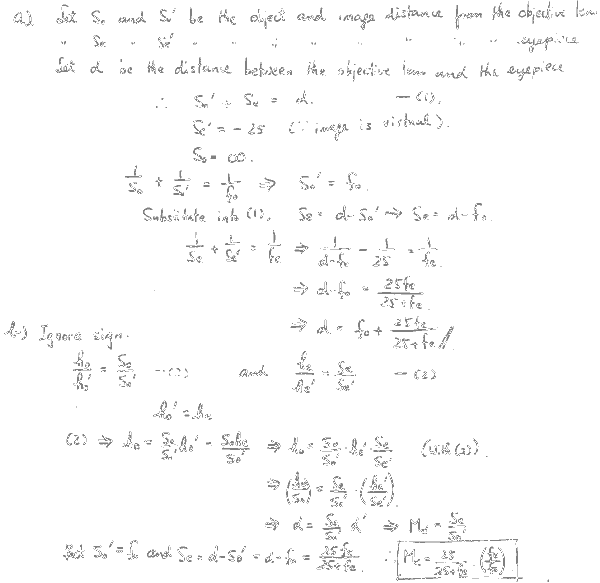 a) Let So and So' be the object and image distance from the objective lens
" Se " Se' " " " " " " " " " eyepiece
Let d be the distance between the objective lens and the eyepiece
∴ So' + Se = d. — (1).
Se' = -25 (∵ image is virtual).
So = ∞.
1/So + 1/So' = 1/fo ⇒ So' = fo.
Substitute into (1), Se = d-So' → Se = d-fo.
1/Se + 1/Se' = 1/fe ⇒ 1/d-fo - 1/25 = 1/fe.
⇒ d-fo = 25fe/25+fe
⇒ d = fo + 25fe/25+fe //
b) Ignore sign.
ho/ho' = So/So' — and he/he' = Se/Se' — (2)
ho' = he
(2) ⇒ ho = So/So' ho' = So he/So' ⇒ ho = So/So' · he' · Se/Se'
⇒ (ho/So) = Se/So' · (he'/Se').
⇒ α = Se/So' α' ⇒ Me = Se/So'
But So' = fo and Se = d-So' = d-fo = 25fe/25+fe. ∴ Me = 25/25+fe · (fe/fo)